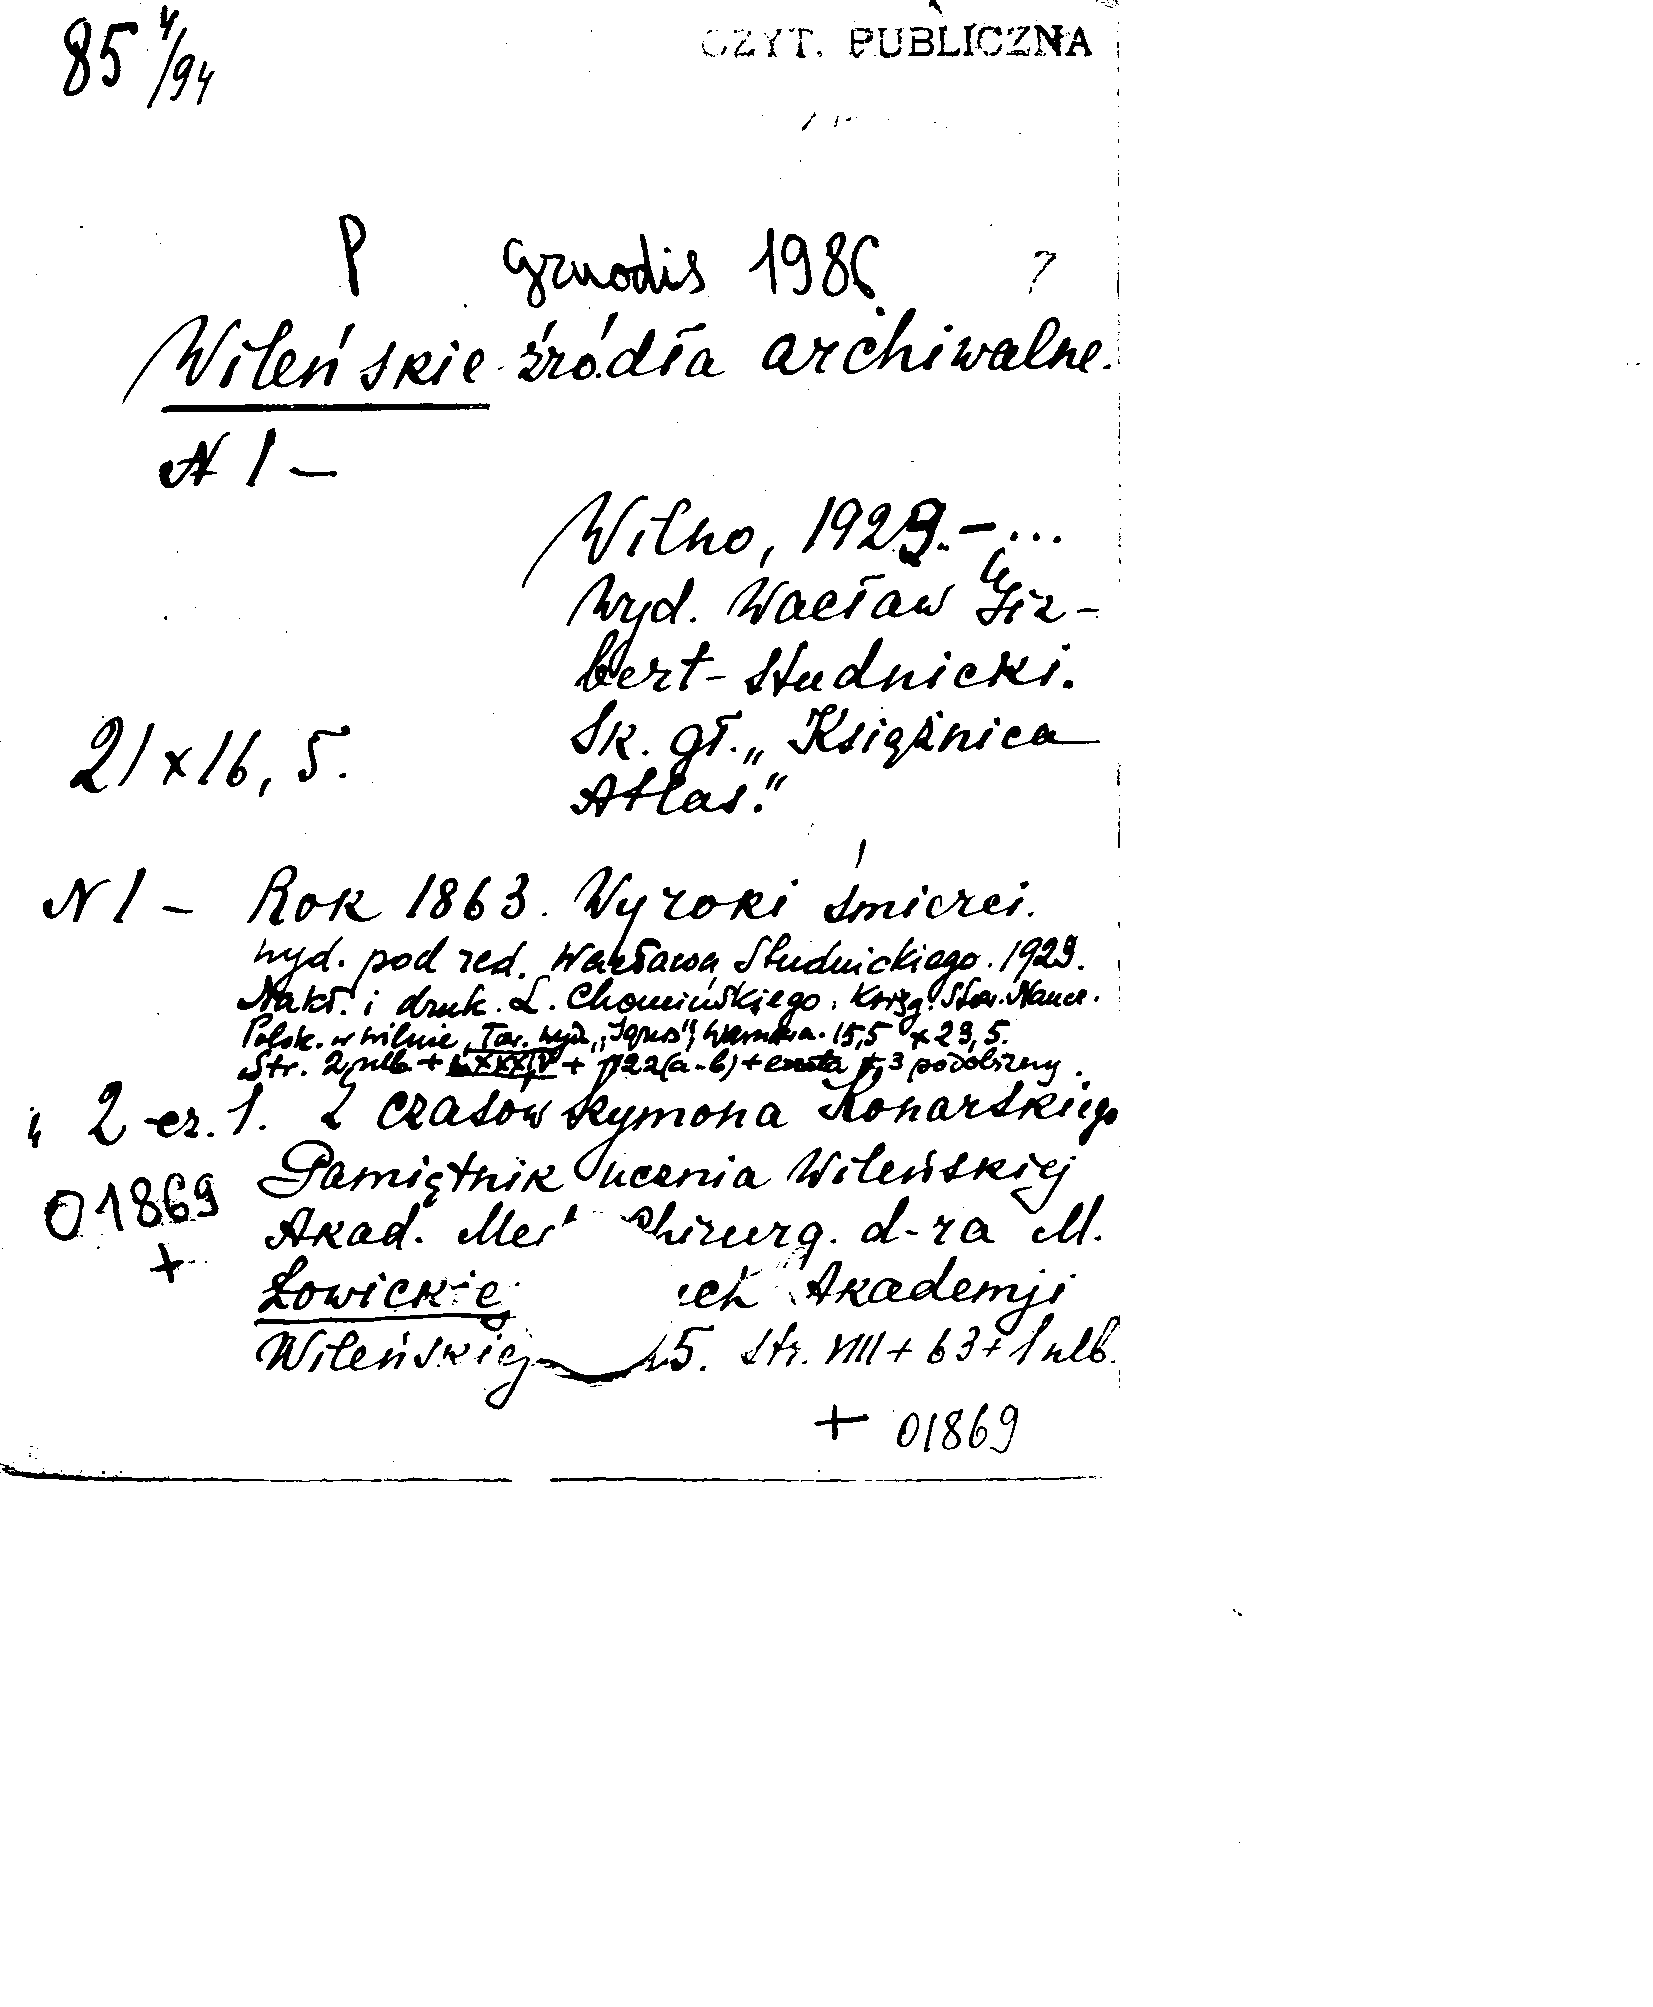 85 4/94
CZYT. PUBLICZNA
P gruodis 1986 ?
Wileńskie źródła archiwalne.
N 1 –
Wilno, 1929. – ...
Wyd. Wacław Giz-
bert-Studnicki.
Sk. gł. „Książnica
Atlas."
21 x 16,5.
N 1 – Rok 1863. Wyroki śmierci.
wyd. pod red. Wacława Studnickiego. 1923.
Nakł. i druk. L. Chomińskiego. Księg. Stow. Naucz.
Polsk. w Wilnie, Tow. wyd. „Ignis", Warszawa. 15,5 x 23,5.
Str. 2 nlb. + LXXXIV + 122(a-b) + errata + 3 podobizny.
„ 2 cz. 1. Z czasów Szymona Konarskiego
Pamiętnik ucznia Wileńskiej
01869
+
Akad. Med Chirurg. d-ra M.
Łowickie ech Akademji
Wileńskiej 5. str. VIII + 63 + 1 nlb.
+ 01869